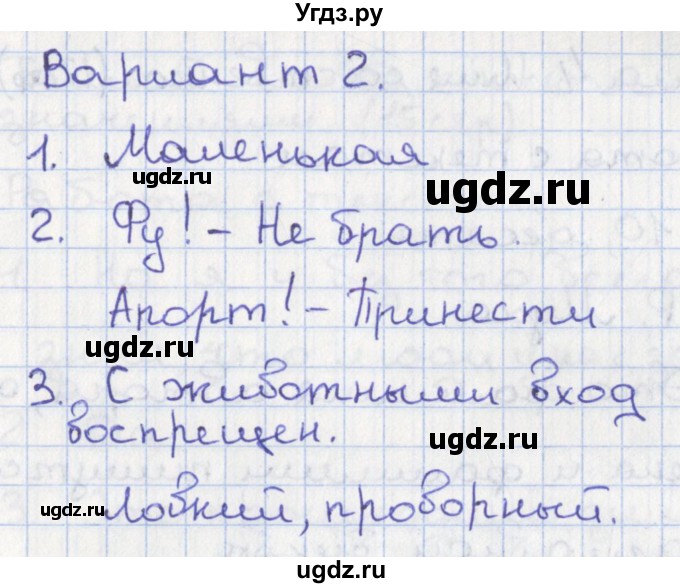 Угдз.ру
Вариант 2.
1. Маленькая
ugdz.ru
ugdz.ru
2. Фу! - Не брать.
Апорт! - Принести
ugdz.ru
3. С животными вход
воспрещен.
ugdz.ru
Ловкий, проворный.
ugdz.ru
ugdz.ru